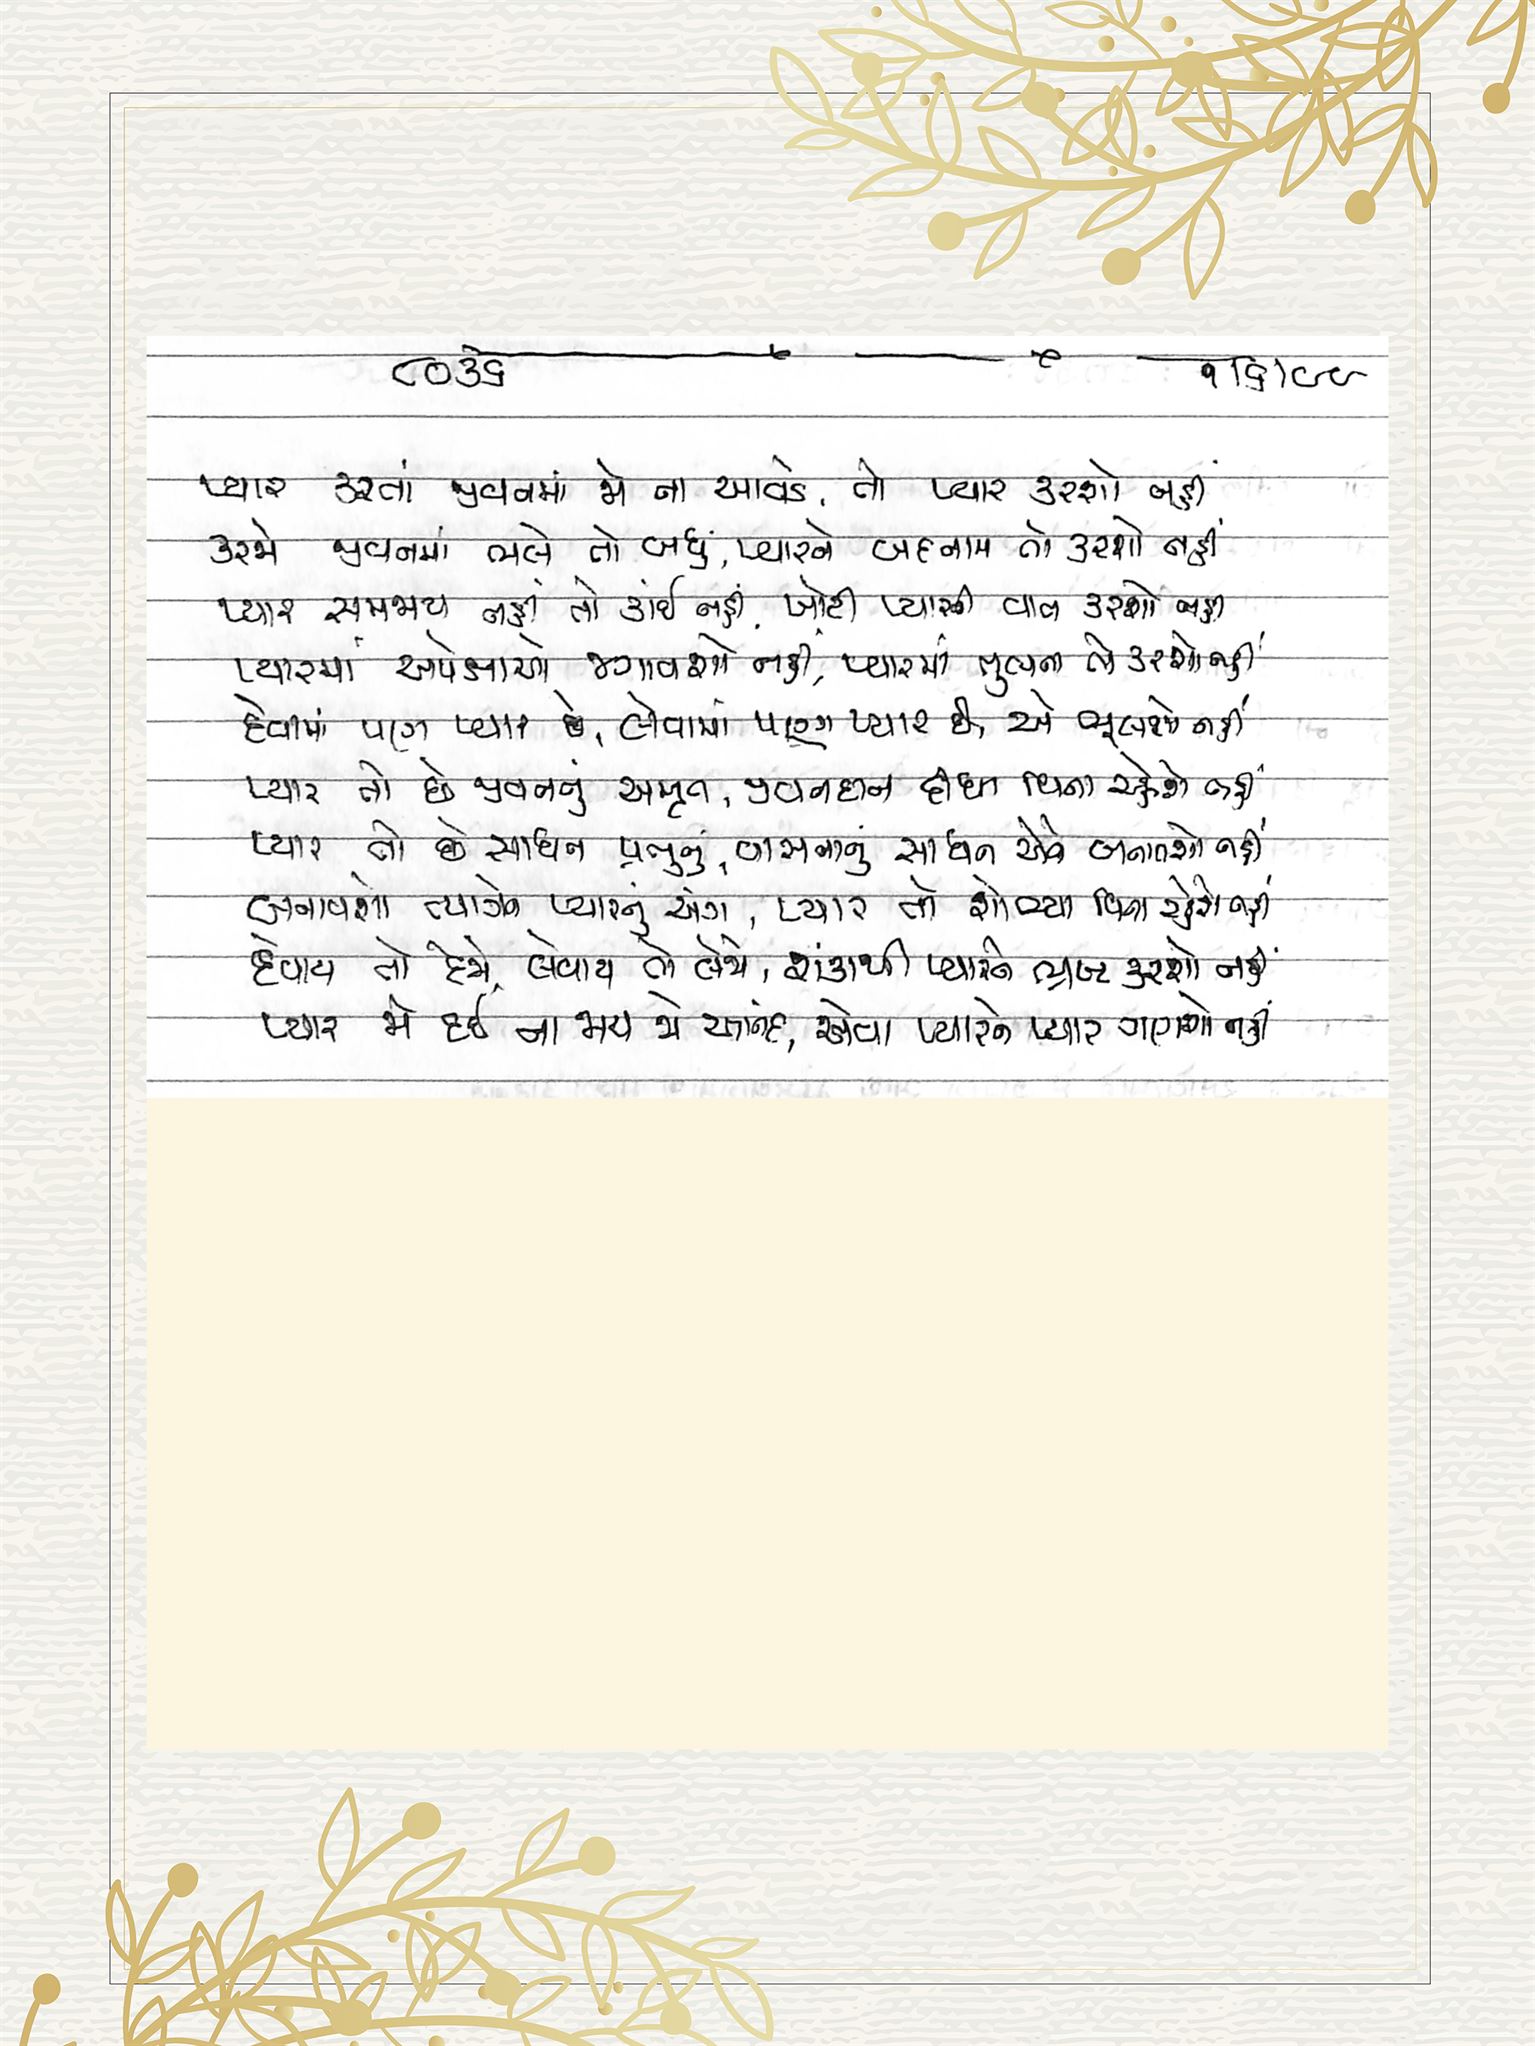 ૮૦૩૬ ૧।૬।૯૯
પ્યાર કરતાં જીવનમાં જો ના આવડે, તો પ્યાર કરશો નહીં
કરજો જીવનમાં ભલે તો બધું, પ્યારને બદનામ તો કરશો નહીં
પ્યાર સમજાય નહીં તો કાંઈ નહીં, ખોટી પ્યારની વાત કરશો નહીં
પ્યારમાં અપેક્ષાઓ જગાવશો નહીં, પ્યારમાં તુલના તો કરશો નહીં
દેવામાં પણ પ્યાર છે, લેવામાં પણ પ્યાર છે, એ ભૂલશો નહીં
પ્યાર તો છે જીવનનું અમૃત, જીવનદાન દીધા વિના રહેશે નહીં
પ્યાર તો છે સાધન પ્રભુનું, વાસનાનું સાધન એને બનાવશો નહીં
બનાવશો ત્યાગને પ્યારનું અંગ, પ્યાર તો શોભ્યા વિના રહેશે નહીં
દેવાય તો દેજો, લેવાય તો લેજો, શંકાથી પ્યારને ભ્રષ્ટ કરશો નહીં
પ્યાર જો દર્દ ના જાય જો આનંદ, એવા પ્યારને પ્યાર ગણશો નહીં